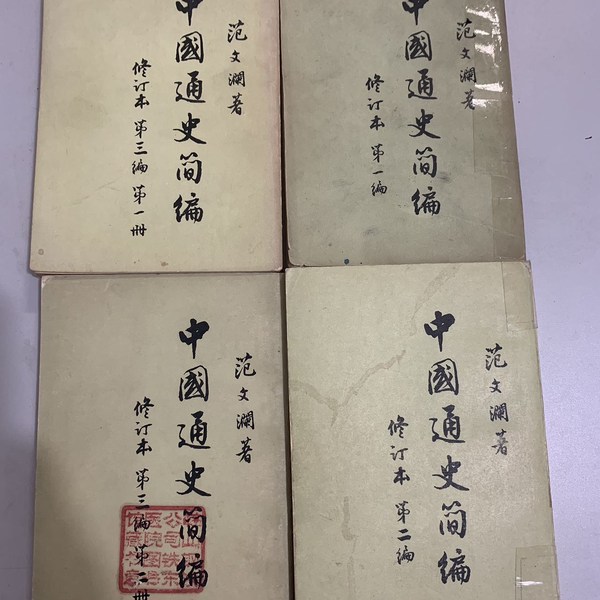 中國通史简编
范文瀾著
修订本 第三编 第一册
中國通史简编
范文瀾著
修订本 第一编
中國通史简编
范文瀾著
修订本 第三编 第二册
中國通史简编
范文瀾著
修订本 第二编